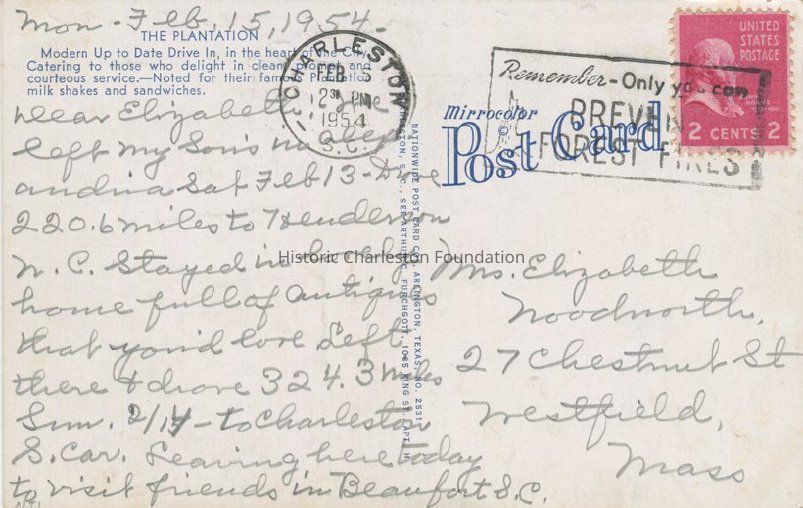 Mon. Feb. 15, 1954-
THE PLANTATION
Modern Up to Date Drive In, in the heart of the City.
Catering to those who delight in clean, prompt and
courteous service.—Noted for their famous Plantation
milk shakes and sandwiches.
Dear Elizabeth We
left my Son's in Alex-
andria Sat Feb 13 - Drove
220.6 miles to Henderson
N.C. Stayed in lovely
home full of antiques
that you'd love Left
there & drove 324.3 miles
Sun. 2/14 - to Charleston
S. Car. Leaving here today
to visit friends in Beaufort S.C.
CHARLESTON
FEB
PM
1954
S.C.
Remember - Only you can
PREVENT
FOREST FIRES
UNITED
STATES
POSTAGE
2 CENTS 2
Mirrocolor
Post Card
©
NATIONWIDE POST CARD CO., ARLINGTON, TEXAS, NO. 2531
SEE ARTHUR C. FURCHGOTT, 1085 KING ST. CAPT. H.
Historic Charleston Foundation
Mrs. Elizabeth
Woodworth,
27 Chestnut St
Westfield,
Mass